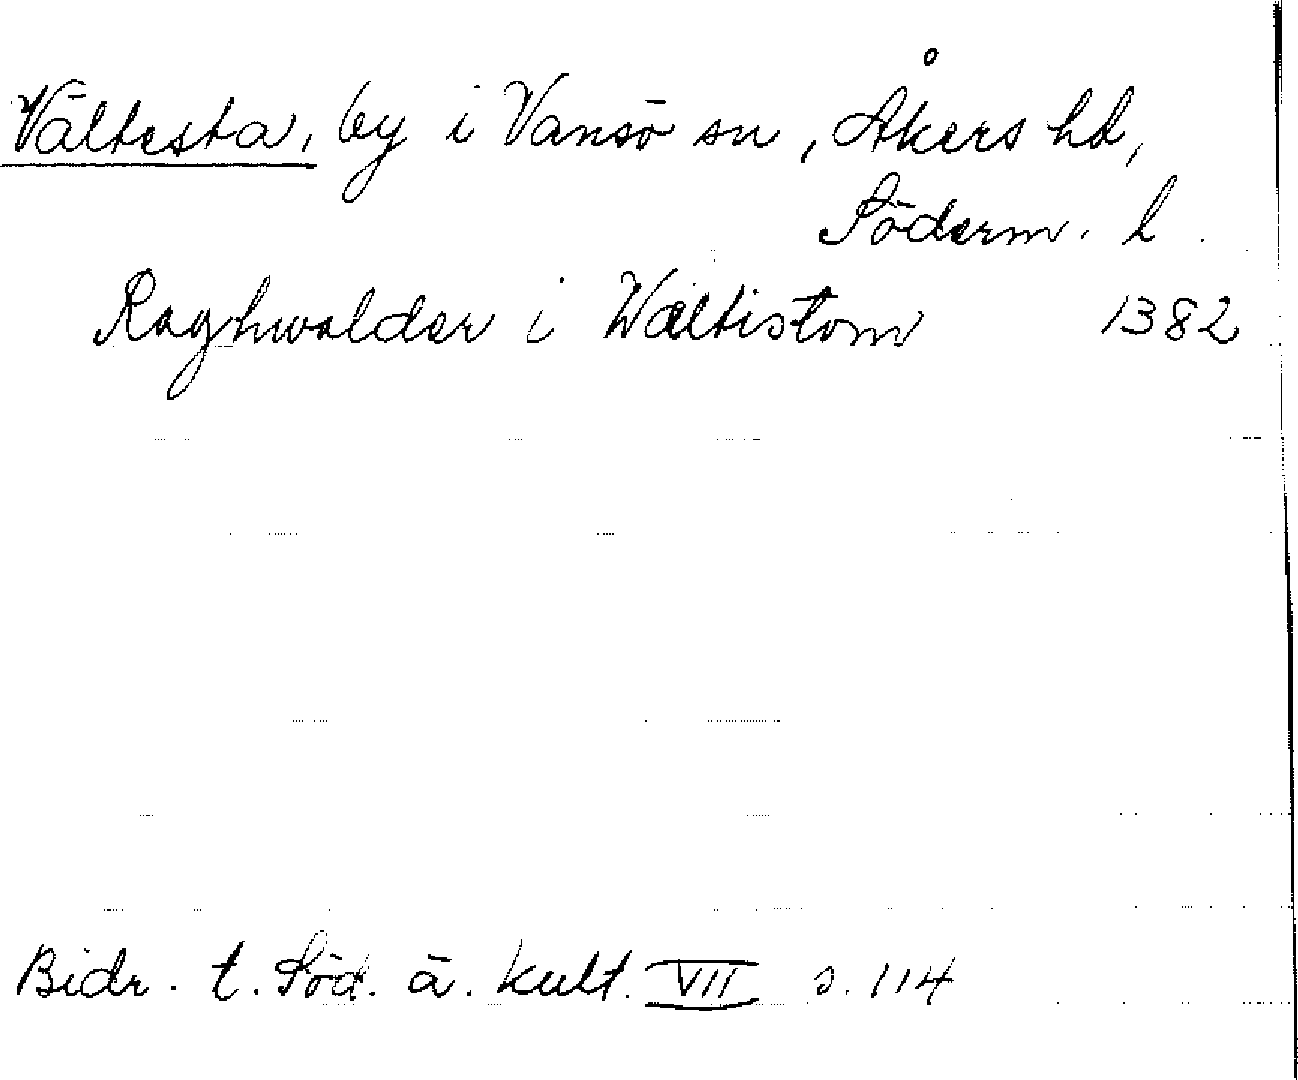 Vältesta, by i Vansö sn, Åkers hd,
Söderm. l.
Raghwalder i Wæltistom 1382
Bidr. t. Söd. ä. kult. VII s. 114